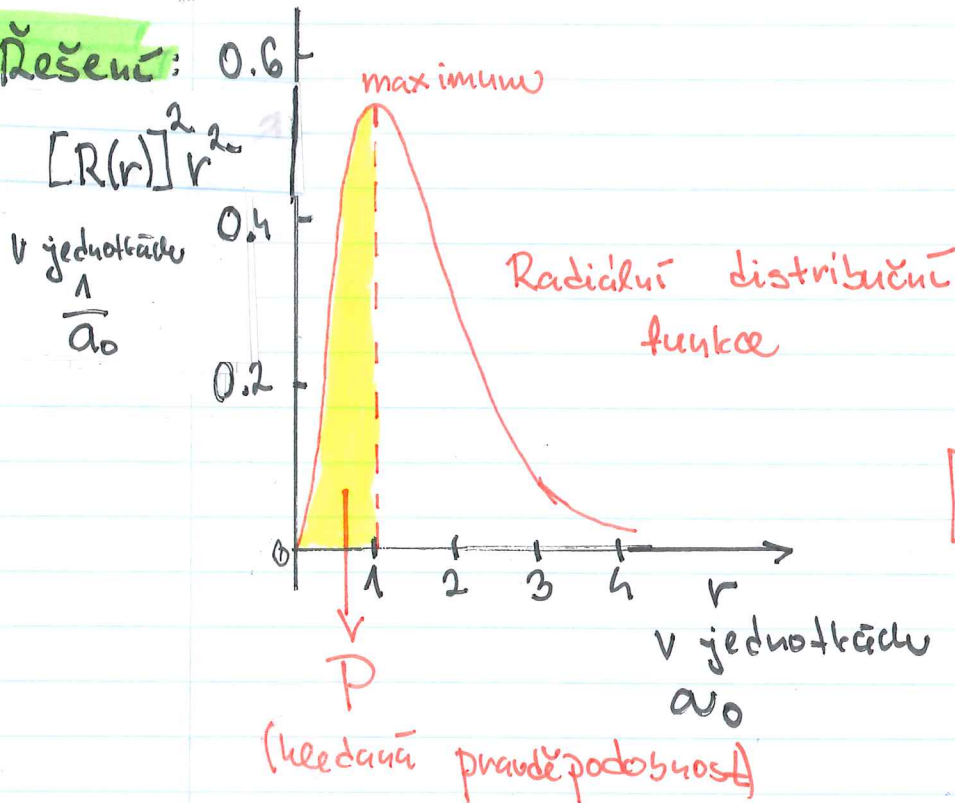 Řešení:
0.6
maximum
[R(r)]² r²
v jednotkách
1
a₀
0.4
Radiální distribuční
funkce
0.2
0
1 2 3 4 r
v jednotkách
a₀
P
(hledaná pravděpodobnost)